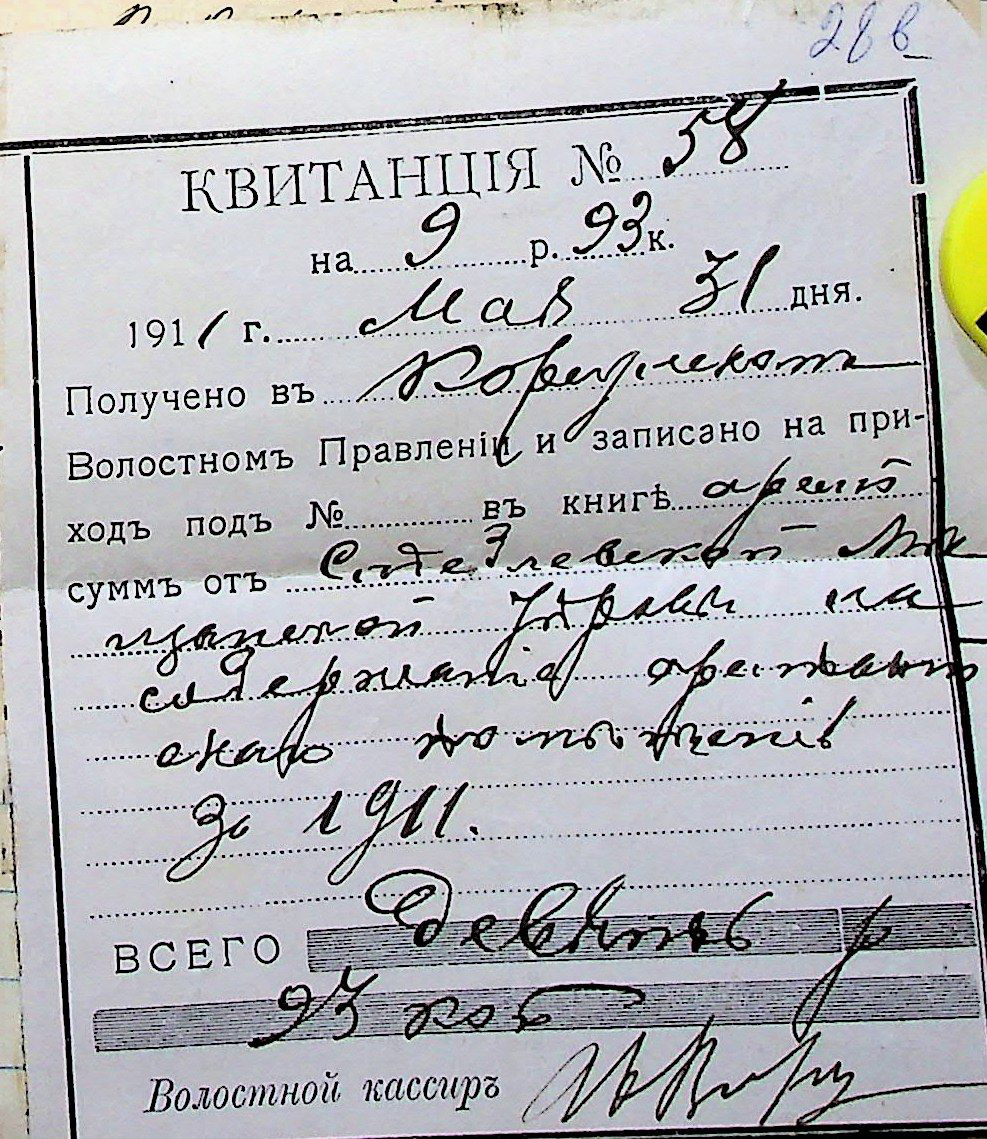 28 в
КВИТАНЦІЯ № 58
на 9 р. 93 к.
1911 г. Мая 31 дня.
Получено въ
Волостномъ Правленіи и записано на при-
ходъ подъ № въ книгѣ
суммъ отъ
Управы на
содержаніе арестант
скаго помѣщенія
за 1911.
ВСЕГО девять р
93 коп
Волостной кассиръ